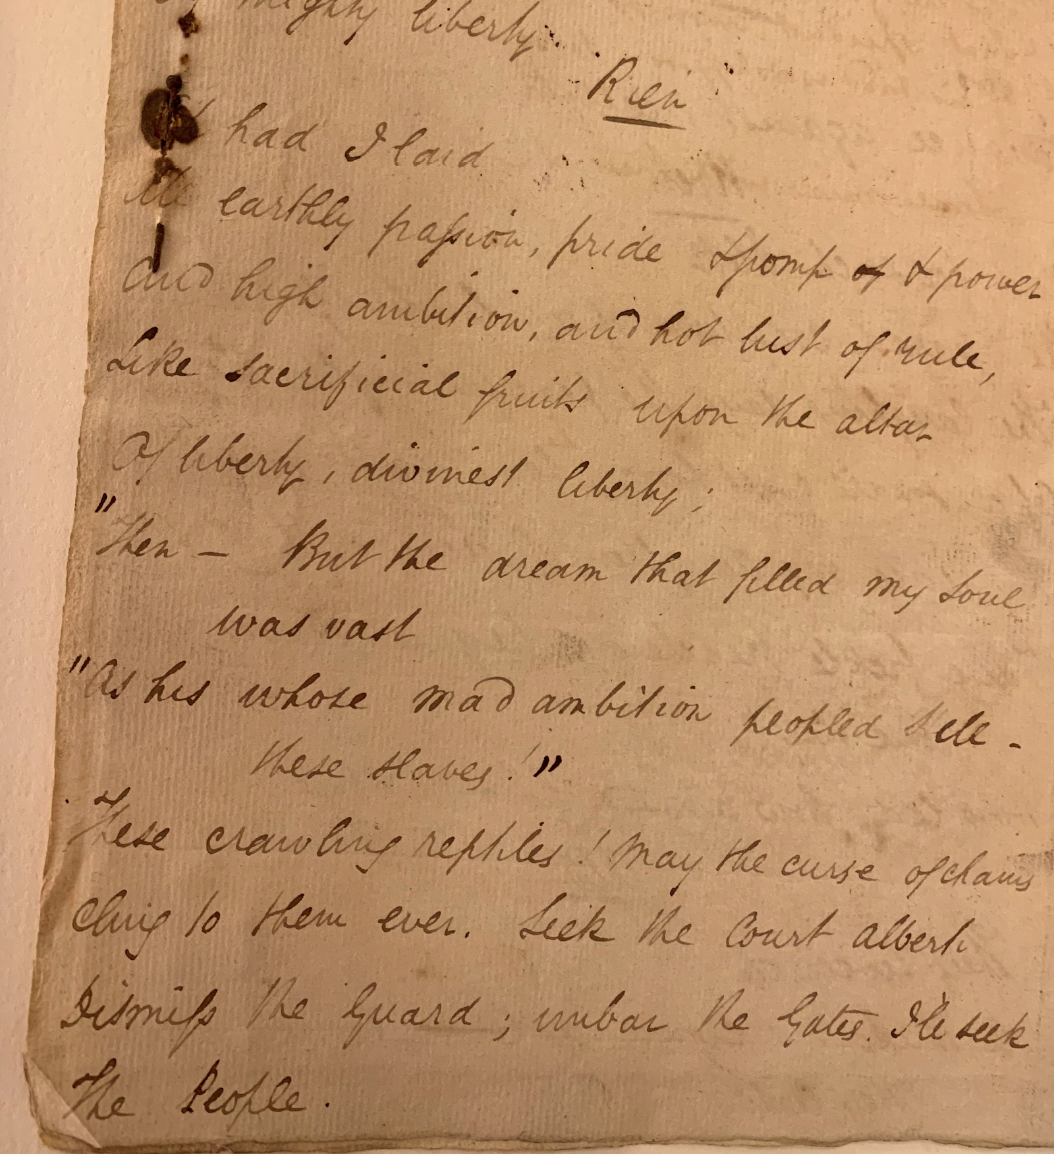 mighty liberty.
Rien
had I laid
All earthly passion, pride & pomp of & power
And high ambition, and hot lust of rule,
Like sacrificial fruits upon the altar
Of liberty, divinest liberty;
"Then – But the dream that filled my soul
was vast
"As his whose mad ambition peopled
these slaves!"
These crawling reptiles! May the curse of chains
Cling to them ever. Seek the Court Alberti
Dismiss the Guard; unbar the Gates. I'le seek
The People.